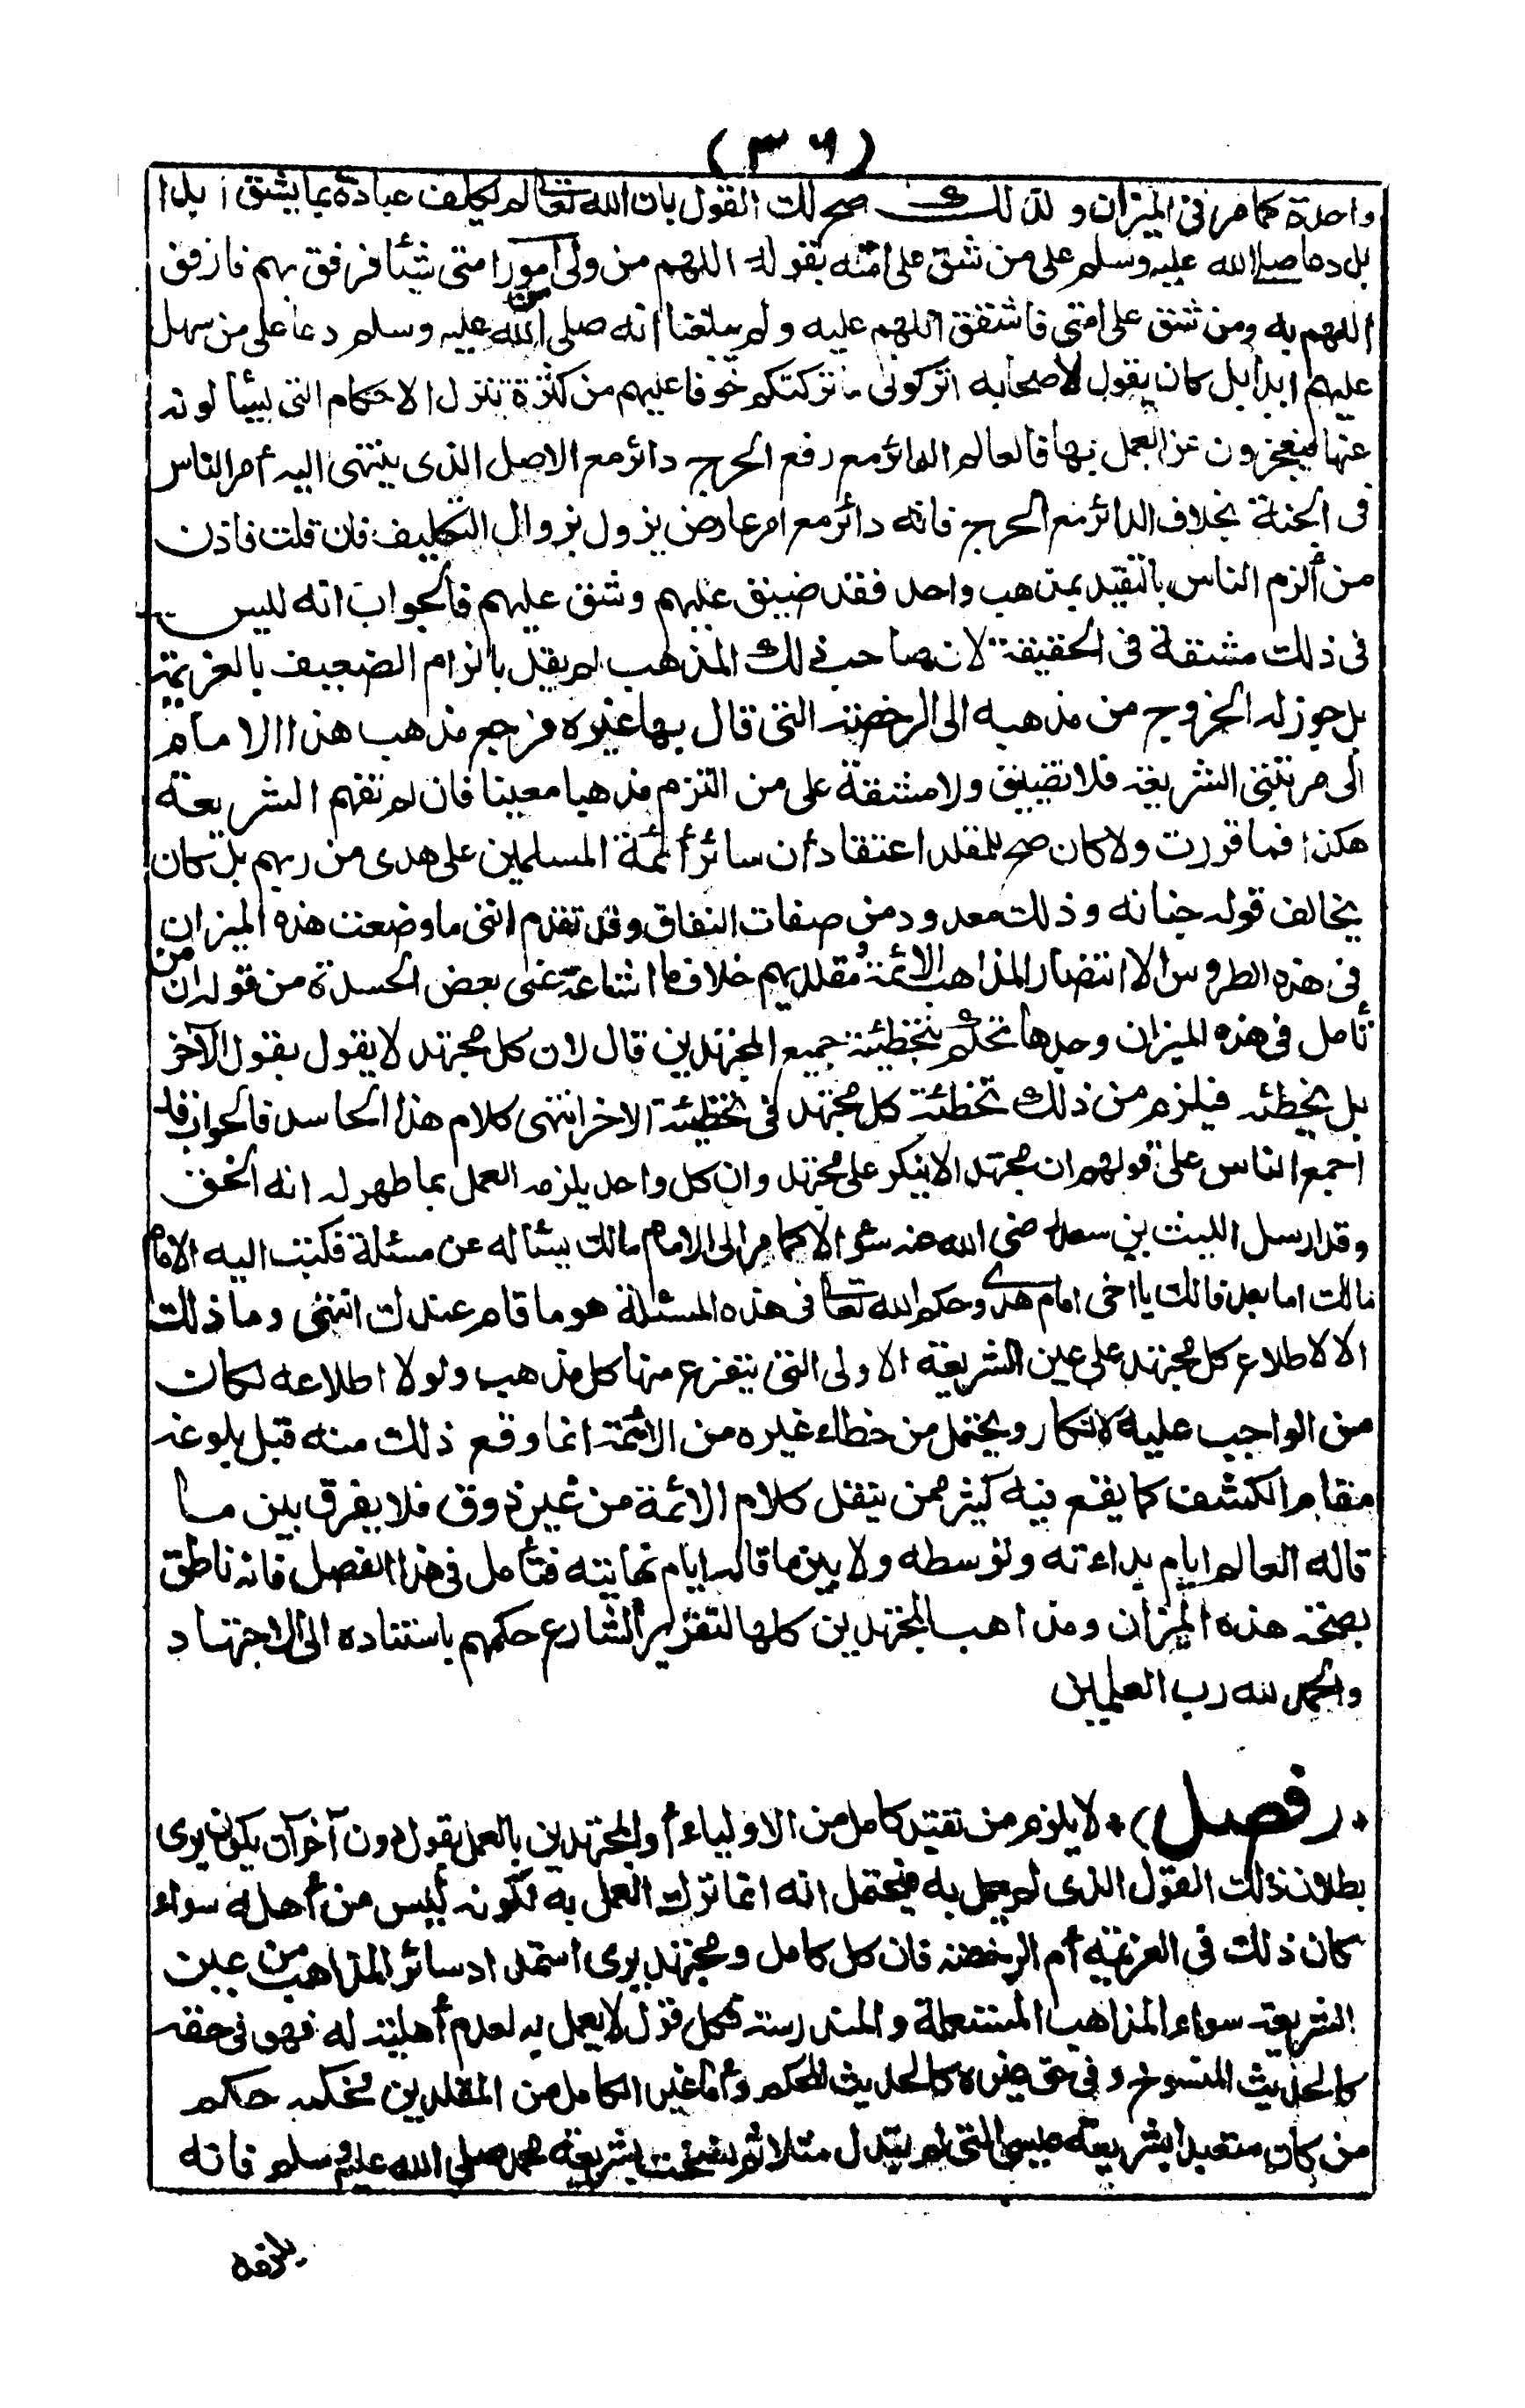 (٣٦)
واحدة كما مر في الميزان ولذلك صح لك القول بان الله تعالى لم يكلف عباده بما يشق ابدا
بل دعا صلى الله عليه وسلم على من شق على امته بقوله اللهم من ولى امور امتى شيئا فرفق بهم فارفق
اللهم به ومن شق على امتى فاشقق اللهم عليه ولم يبلغنا انه صلى الله عليه وسلم دعا على من سهل
عليهم ابدا بل كان يقول لأصحابه اتركونى ما تركتكم خوفا عليهم من كثرة تنزل الاحكام التى يسئالونه
عنها فيعجزون عن العمل بها فالعالم الدائر مع رفع الحرج دائر مع الاصل الذى ينتهى اليه أمر الناس
فى الجنة بخلاف الدائر مع الحرج فانه دائر مع امر عارض يزول بزوال التكليف فان قلت فاذن
من ألزم الناس بالتقيد بمذهب واحد فقد ضيق عليهم وشق عليهم فالجواب انه ليس
فى ذلك مشقة فى الحقيقة لان صاحب ذلك المذهب لم يقل بالزام الضعيف بالعزيمة
بل جوز له الخروج من مذهبه الى الرخصة التى قال بها غيره فرجع مذهب هذا الامام
الى مرتبتى الشريعة فلا تضييق ولا مشقة على من التزم مذهبا معينا فان لم تفهم الشريعة
هكذا فما قررت ولا كان صح للمقلد اعتقاد أن سائر أئمة المسلمين على هدى من ربهم بل كان
يخالف قوله جنانه وذلك معدود من صفات النفاق وقد تقدم اننى ما وضعت هذه الميزان
فى هذه الطروس الا انتصارا لمذاهب الائمة ومقلديهم خلاف ما اشاعه عنى بعض الحسدة من قوله ان من
تأمل فى هذه الميزان وجدها تحكم بتخطئة جميع المجتهدين قال لان كل مجتهد لا يقول بقول الآخر
بل يخطئه فيلزم من ذلك تخطئة كل مجتهد فى تخطيئة الاخر انتهى كلام هذا الحاسد فالجواب قد
اجمع الناس على قولهم ان مجتهد الا ينكر على مجتهد وان كل واحد يلزمه العمل بما ظهر له انه الحق
وقد ارسل الليث بن سعد رضى الله عنه سؤالا كما مر الى الامام مالك يسئاله عن مسئلة فكتب اليه الامام
مالك اما بعد فانك يا اخى امام هدى وحكم الله تعالى فى هذه المسئلة هو ما قام عندك انتهى وما ذلك
الا لاطلاع كل مجتهد على عين الشريعة الاولى التى يتفرع منها كل مذهب ولولا اطلاعه لكان
من الواجب عليه الانكار ويحتمل من خطاء غيره من الائمة انما وقع ذلك منه قبل بلوغه
مقام الكشف كما يقع فيه كثير ممن ينقل كلام الائمة من غير ذوق فلا يفرق بين ما
قاله العالم ايام بداءته وتوسطه ولا بين ما قاله ايام نهايته فتأمل فى هذا الفصل فانه ناطق
بصحة هذه الميزان ومذاهب المجتهدين كلها لتقرير الشارع حكمهم باستناده الى الاجتهاد
والحمد لله رب العلمين
*(فصل)* لا يلزم من تقيد كامل من الاولياء أو المجتهدين بالعمل بقول دون آخر أن يكون يرى
بطلان ذلك القول الذى لم يعمل به فيحتمل انه انما ترك العمل به لكونه ليس من أهله سواء
كان ذلك فى العزيمة أم الرخصة فان كل كامل ومجتهد يرى استمداد سائر المذاهب من عين
الشريعة سواء المذاهب المستعملة والمندرسة فكل قول لا يعمل به لعدم أهليته له فهو فى حقه
كالحديث المنسوخ وفى حق غيره كالحديث المحكم وأما غير الكامل من المقلدين فحكمه حكم
من كان متعبدا بشريعة عيسى التى لم تبدل مثلا ثم نسخت بشريعة محمد صلى الله عليه وسلم فانه